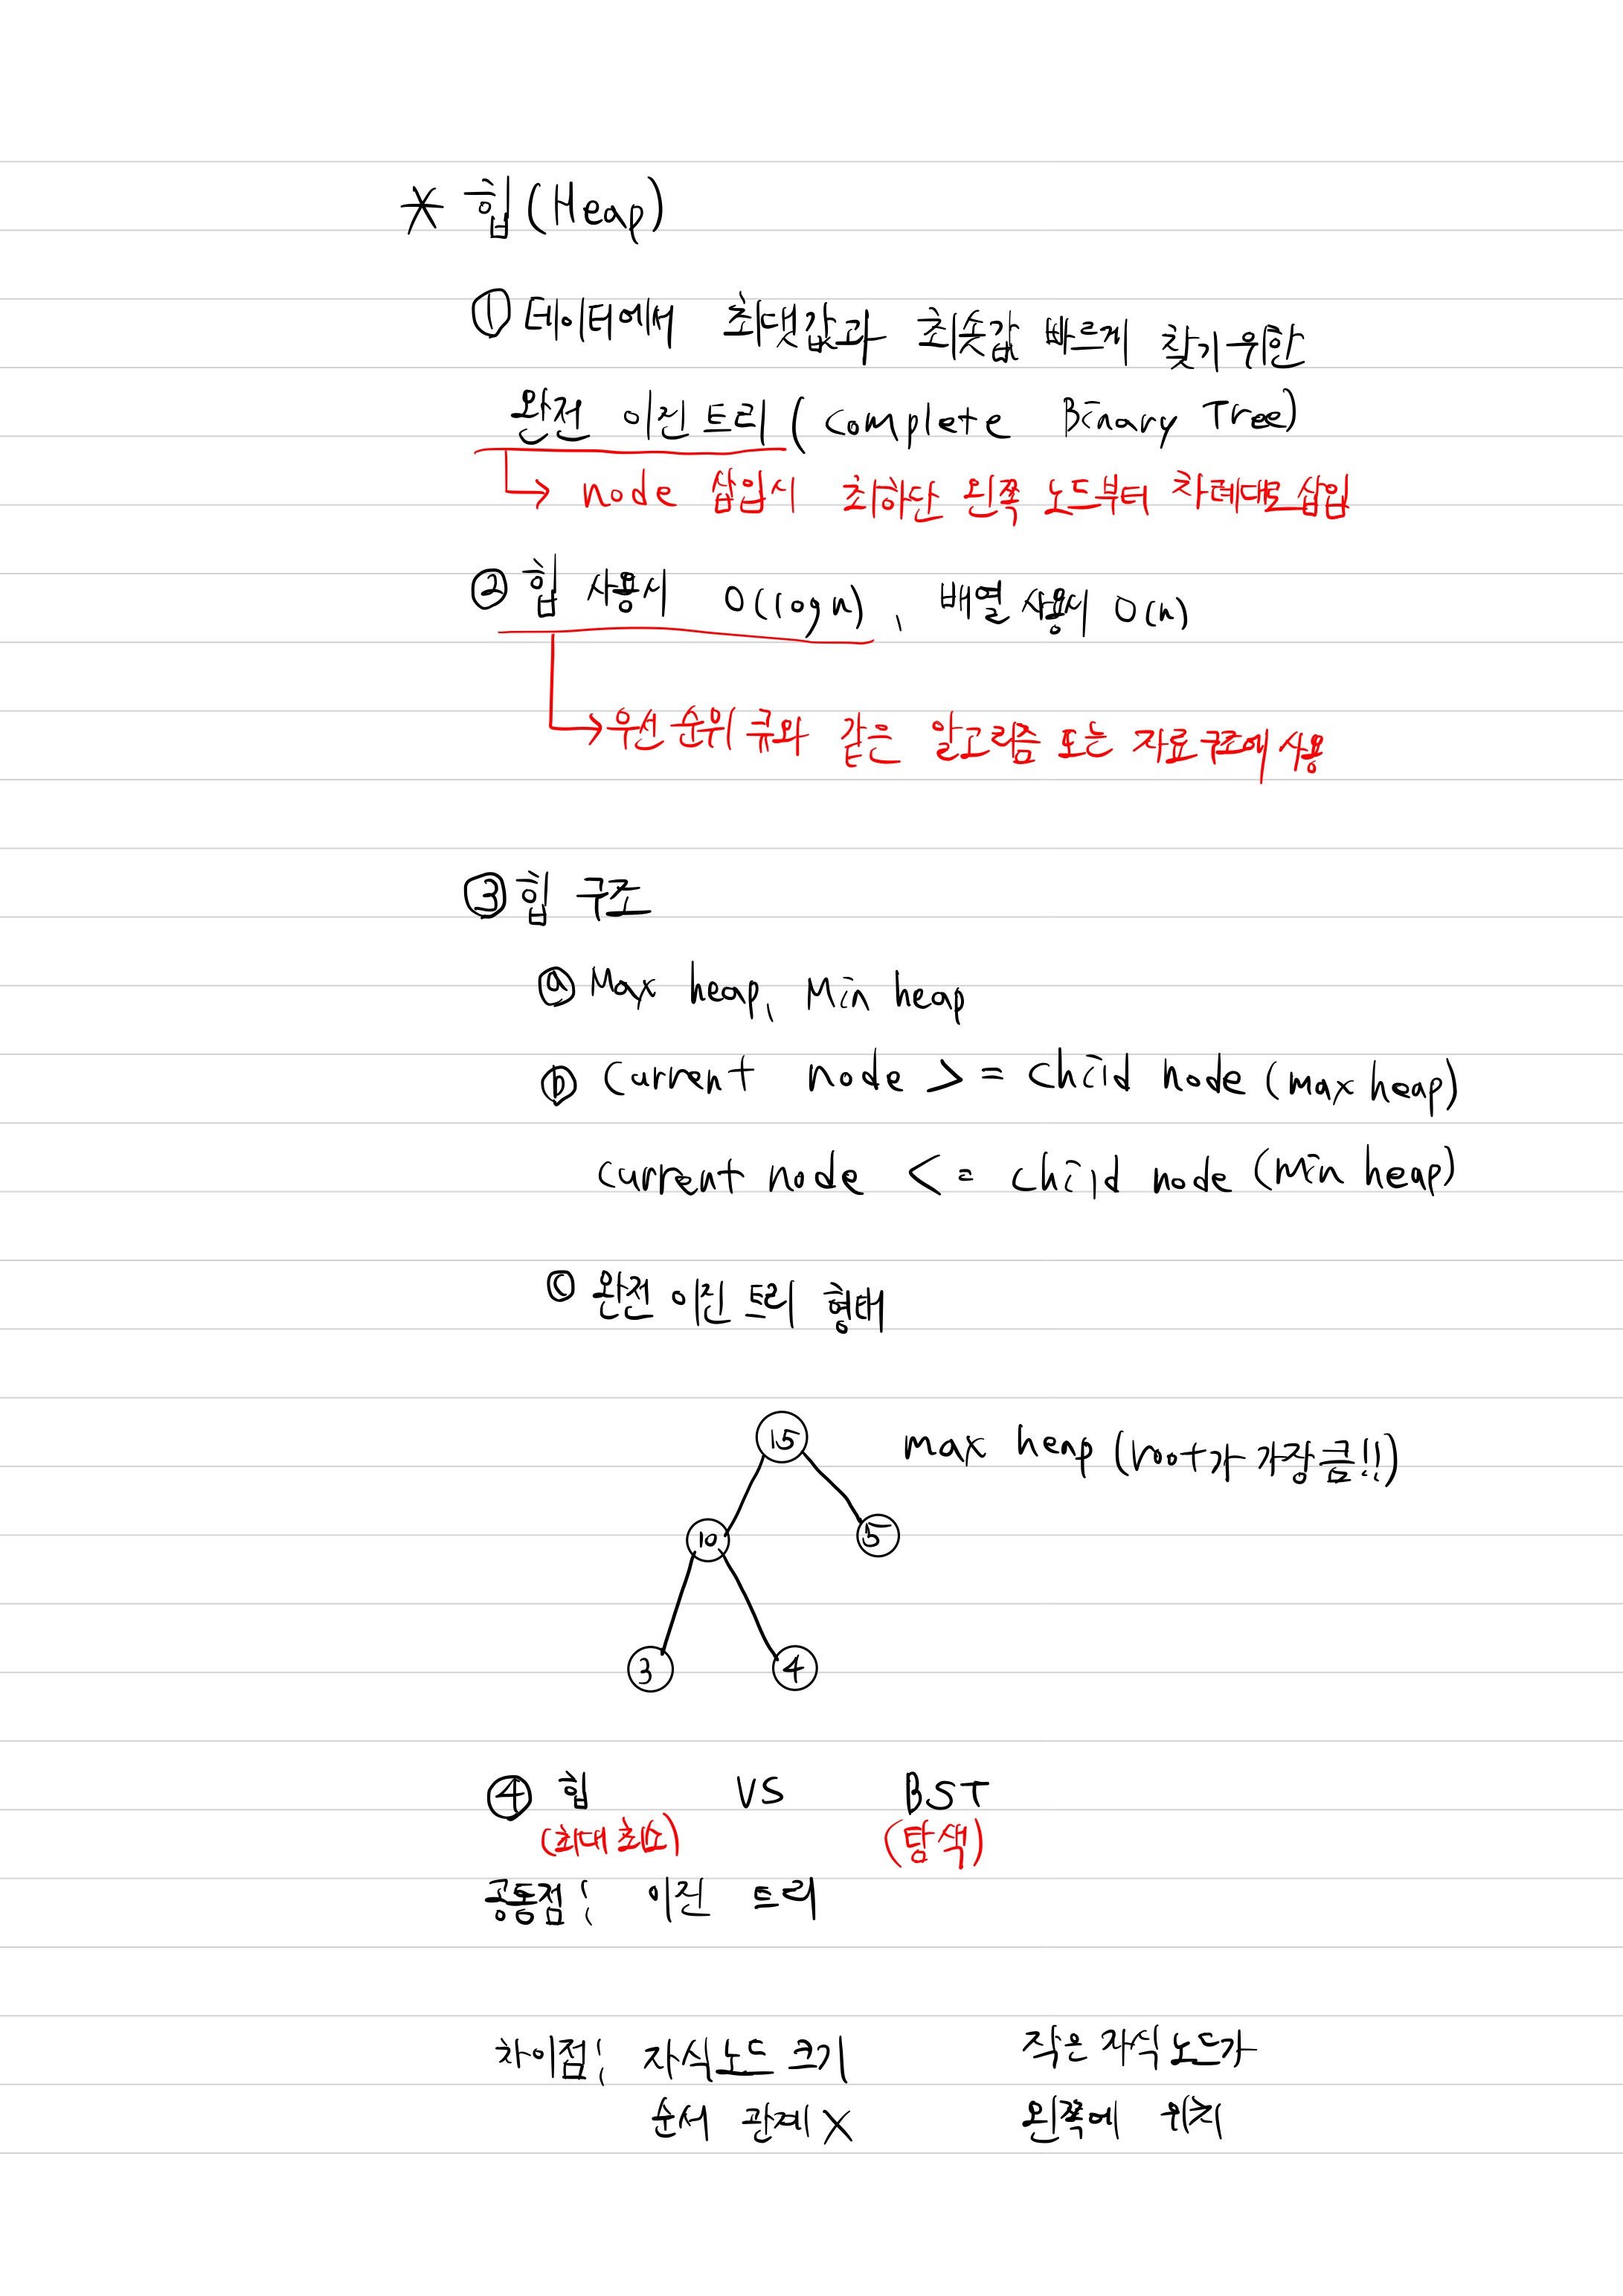 * 힙(Heap)
① 데이터에서 최댓값과 최솟값 빠르게 찾기위한
완전 이진 트리 (complete Binary Tree)
→ node 삽입시 최하단 왼쪽 노드부터 차례대로 삽입
② 힙 사용시 O(log n), 배열 사용시 O(n)
→ 우선순위 큐와 같은 알고리즘 또는 자료구조에 사용
③ 힙 구조
ⓐ Max heap, Min heap
ⓑ Current node >= child node (max heap)
current node <= child node (min heap)
ⓒ 완전 이진 트리 형태
15
max heap (root가 가장 큼!!)
10
5
3
4
④ 힙 VS BST
(최대 최소) (탐색)
공통점: 이진 트리
차이점: 자식노드 크기 작은 자식 노드가
순서 관계 X 왼쪽에 위치